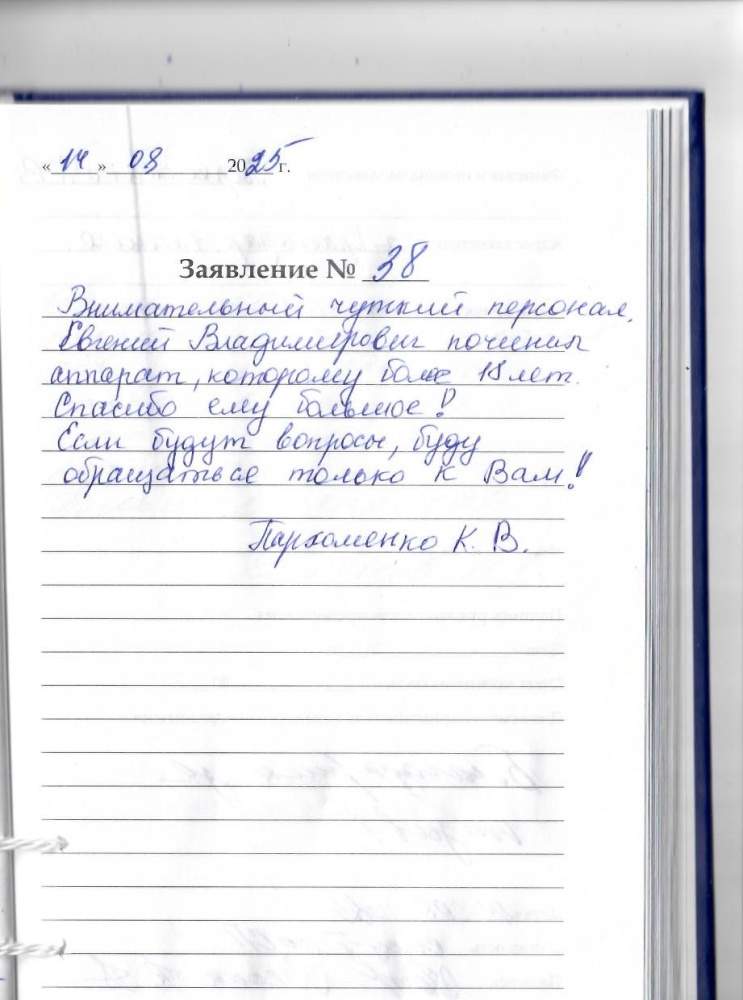 « 14 » 08 2025 г.
Заявление № 38
Внимательный чуткий персонал.
Евгений Владимирович починил
аппарат, которому более 18 лет.
Спасибо ему большое!
Если будут вопросы, буду
обращаться только к Вам!
Пархоменко К. В.